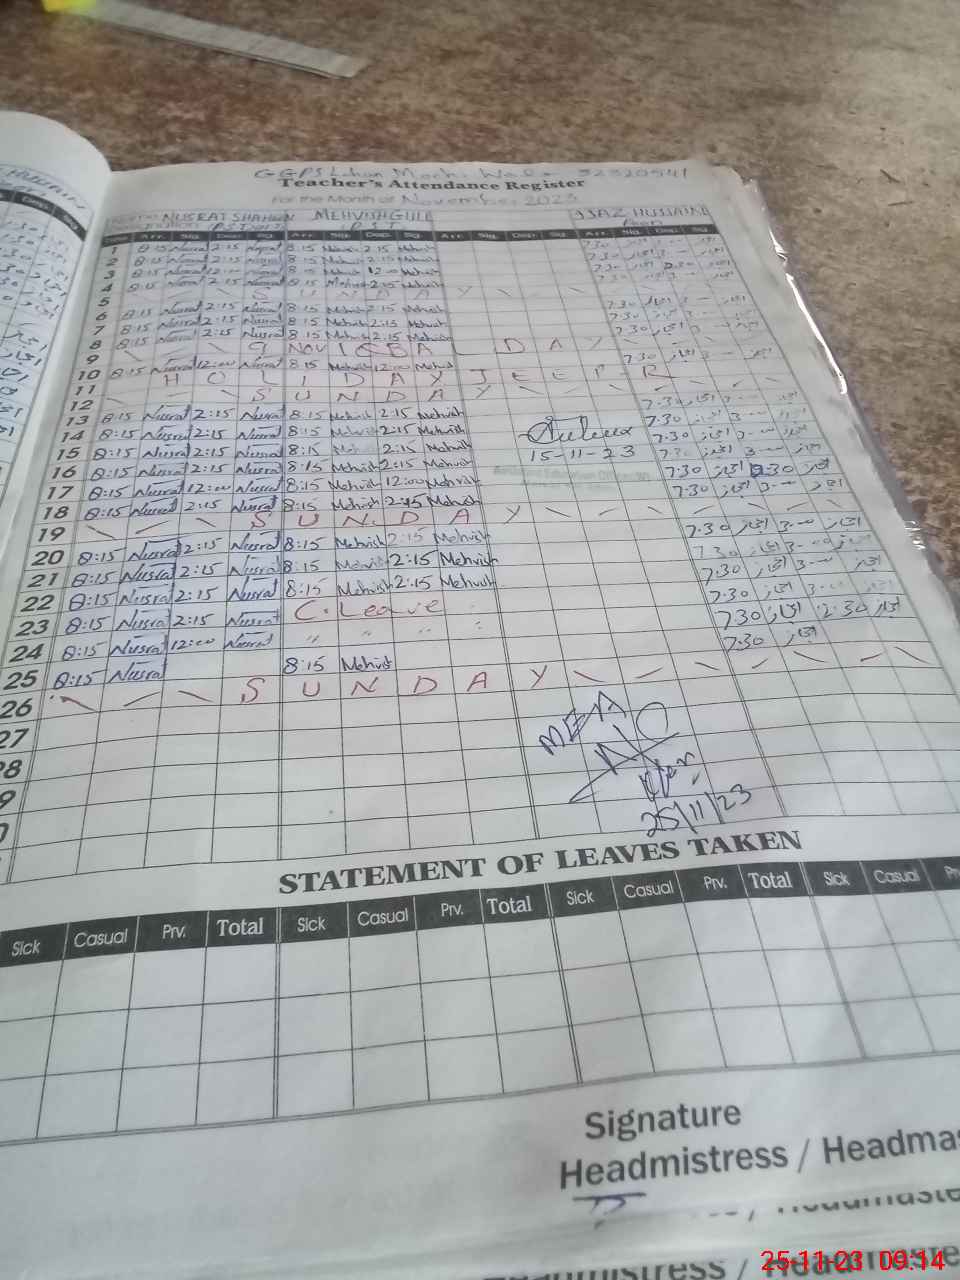 GGPS 32320541
Teacher's Attendance Register
For the Month of November 2023
NUSRAT SHAHEEN MEHVISH GULL IJAZ HUSSAIN
P.S.T
Arr. Sig. Dep. Sig. Arr. Sig. Dep. Sig. Arr. Sig. Dep. Sig. Arr. Sig. Dep. Sig.
1 8:15 Nusrat 2:15 Nusrat 8:15 Mehvish 2:15 Mehvish 7:30 اعجاز 3:00 اعجاز
2 8:15 Nusrat 2:15 Nusrat 8:15 Mehvish 2:15 Mehvish 7:30 اعجاز 3:00 اعجاز
3 8:15 Nusrat 12:00 Nusrat 8:15 Mehvish 12:00 Mehvish 7:30 اعجاز 2:30 اعجاز
4 8:15 Nusrat 2:15 Nusrat 8:15 Mehvish 2:15 Mehvish 7:30 اعجاز 3:00 اعجاز
5 S U N D A Y
6 8:15 Nusrat 2:15 Nusrat 8:15 Mehvish 2:15 Mehvish 7:30 اعجاز 3:00 اعجاز
7 8:15 Nusrat 2:15 Nusrat 8:15 Mehvish 2:15 Mehvish 7:30 اعجاز 3:00 اعجاز
8 8:15 Nusrat 2:15 Nusrat 8:15 Mehvish 2:15 Mehvish 7:30 اعجاز 3:00 اعجاز
9 9 NOV IQBAL DAY
10 8:15 Nusrat 12:00 Nusrat 8:15 Mehvish 12:00 Mehvish 7:30 اعجاز 3:00 اعجاز
11 H O L I D A Y
12 S U N D A Y
13 8:15 Nusrat 2:15 Nusrat 8:15 Mehvish 2:15 Mehvish 7:30 اعجاز 3:00 اعجاز
14 8:15 Nusrat 2:15 Nusrat 8:15 Mehvish 2:15 Mehvish 7:30 اعجاز 3:00 اعجاز
15 8:15 Nusrat 2:15 Nusrat 8:15 Mehvish 2:15 Mehvish 7:30 اعجاز 3:00 اعجاز
15-11-23
16 8:15 Nusrat 2:15 Nusrat 8:15 Mehvish 2:15 Mehvish 7:30 اعجاز 3:00 اعجاز
17 8:15 Nusrat 12:00 Nusrat 8:15 Mehvish 12:00 Mehvish 7:30 اعجاز 2:30 اعجاز
18 8:15 Nusrat 2:15 Nusrat 8:15 Mehvish 2:15 Mehvish 7:30 اعجاز 3:00 اعجاز
19 S U N D A Y
20 8:15 Nusrat 2:15 Nusrat 8:15 Mehvish 2:15 Mehvish 7:30 اعجاز 3:00 اعجاز
21 8:15 Nusrat 2:15 Nusrat 8:15 Mehvish 2:15 Mehvish 7:30 اعجاز 3:00 اعجاز
22 8:15 Nusrat 2:15 Nusrat 8:15 Mehvish 2:15 Mehvish 7:30 اعجاز 3:00 اعجاز
23 8:15 Nusrat 2:15 Nusrat C. Leave 7:30 اعجاز 3:00 اعجاز
24 8:15 Nusrat 12:00 Nusrat " " " " 7:30 اعجاز 2:30 اعجاز
25 8:15 Nusrat 8:15 Mehvish 7:30 اعجاز
26 S U N D A Y
MEA
25/11/23
STATEMENT OF LEAVES TAKEN
Sick Casual Prv. Total Sick Casual Prv. Total Sick Casual Prv. Total Sick Casual
Signature
Headmistress / Headmas
25-11-23 09:14